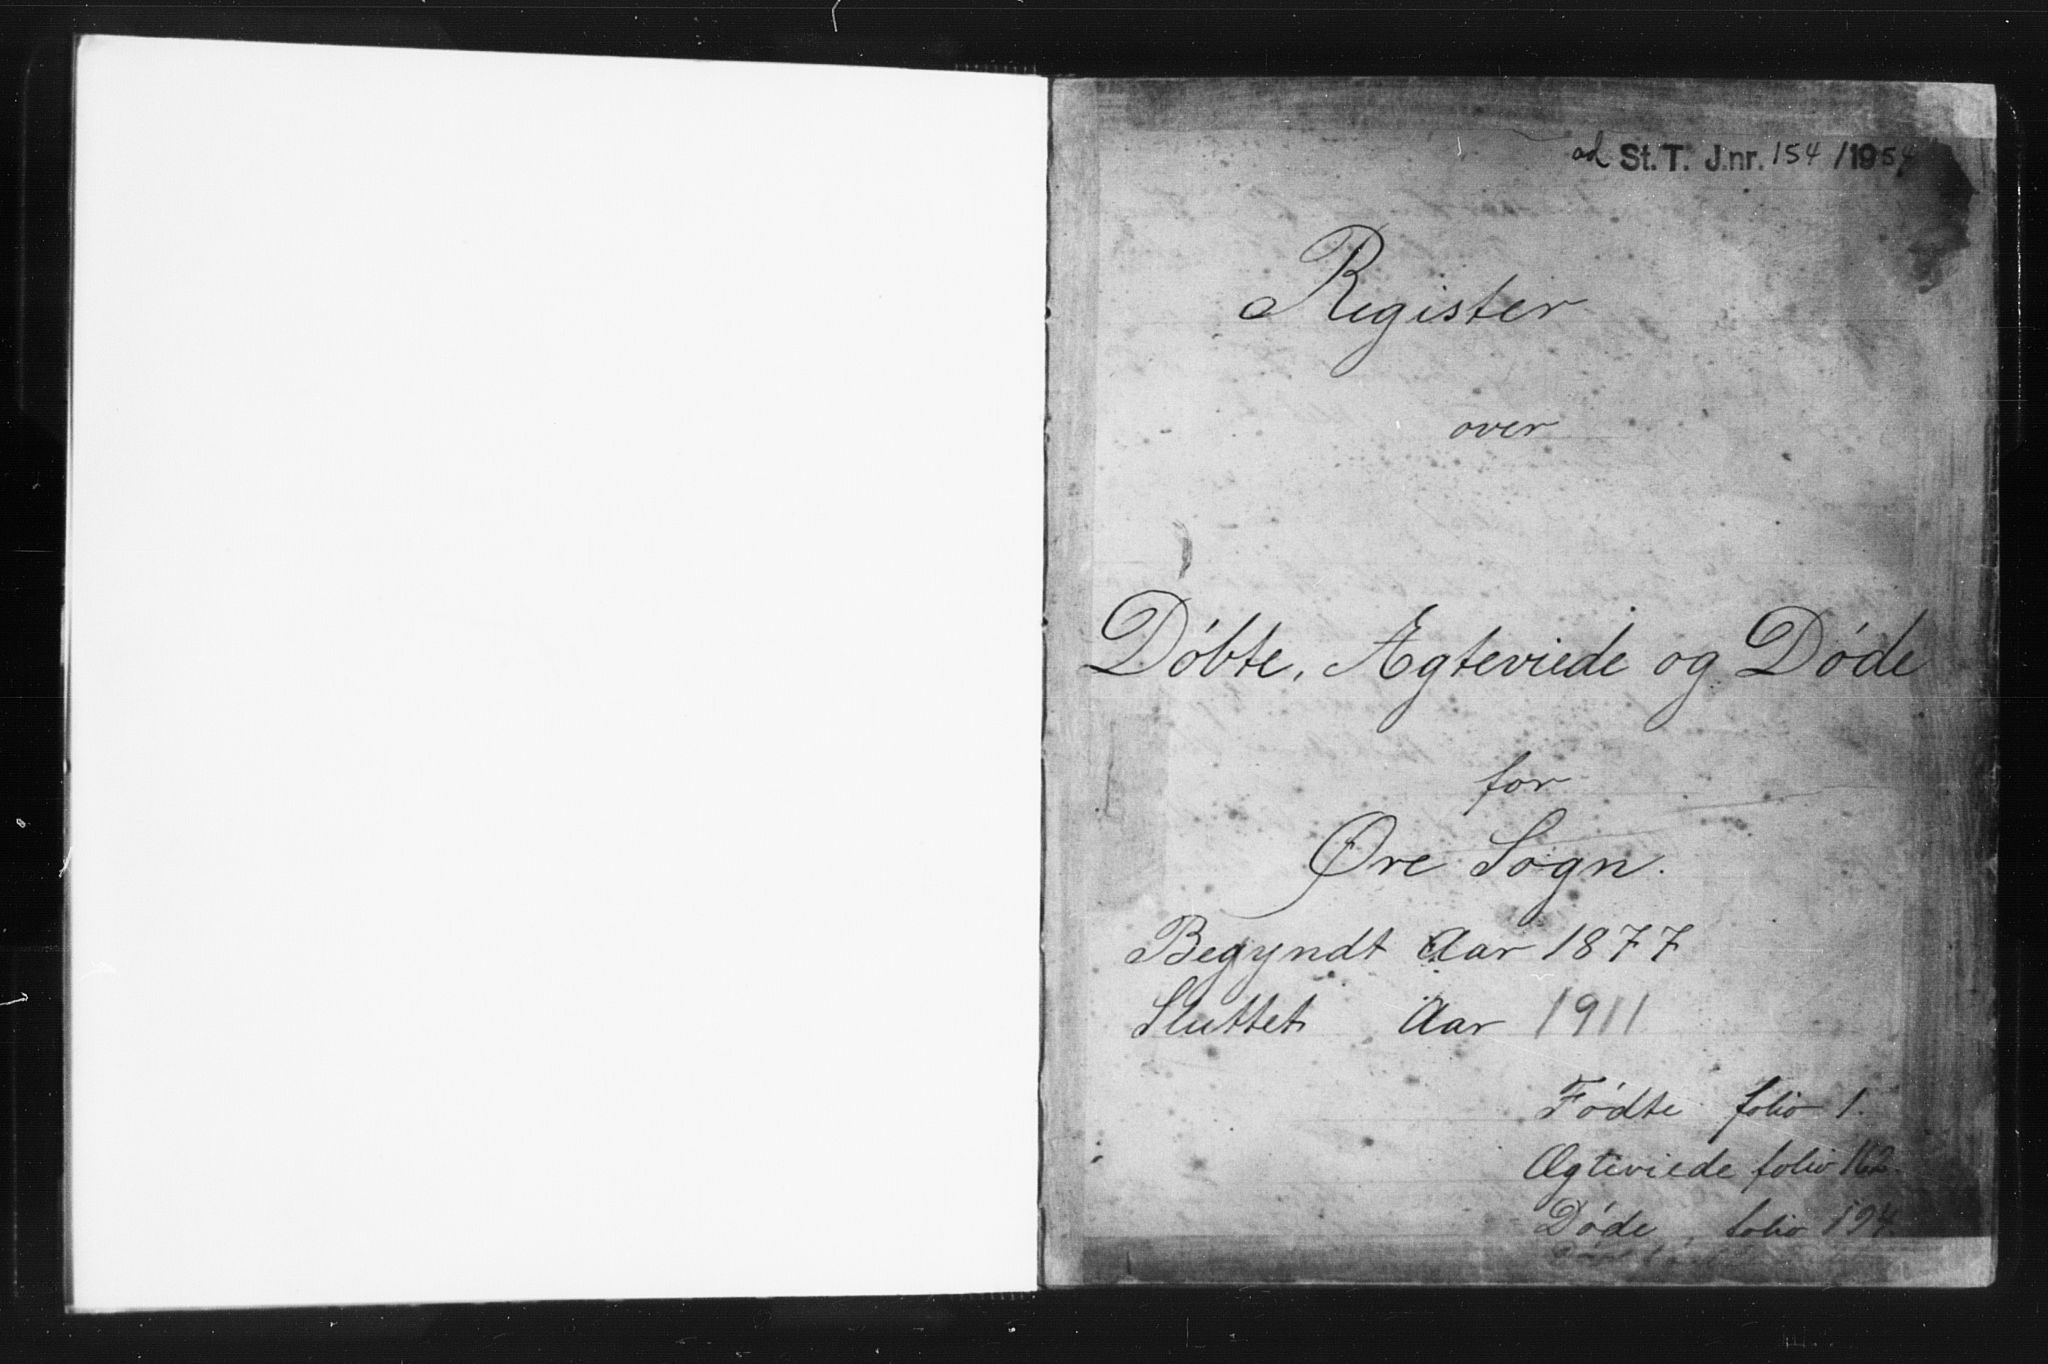 ad St. T. J.nr. 154 /1954
Register
over
Døbte, Ægteviede og Døde
for
Øre Sogn.
Begyndt Aar 1877
Sluttet Aar 1911
Fødte folio 1.
Ægteviede folio 162.
Døde, folio 194.